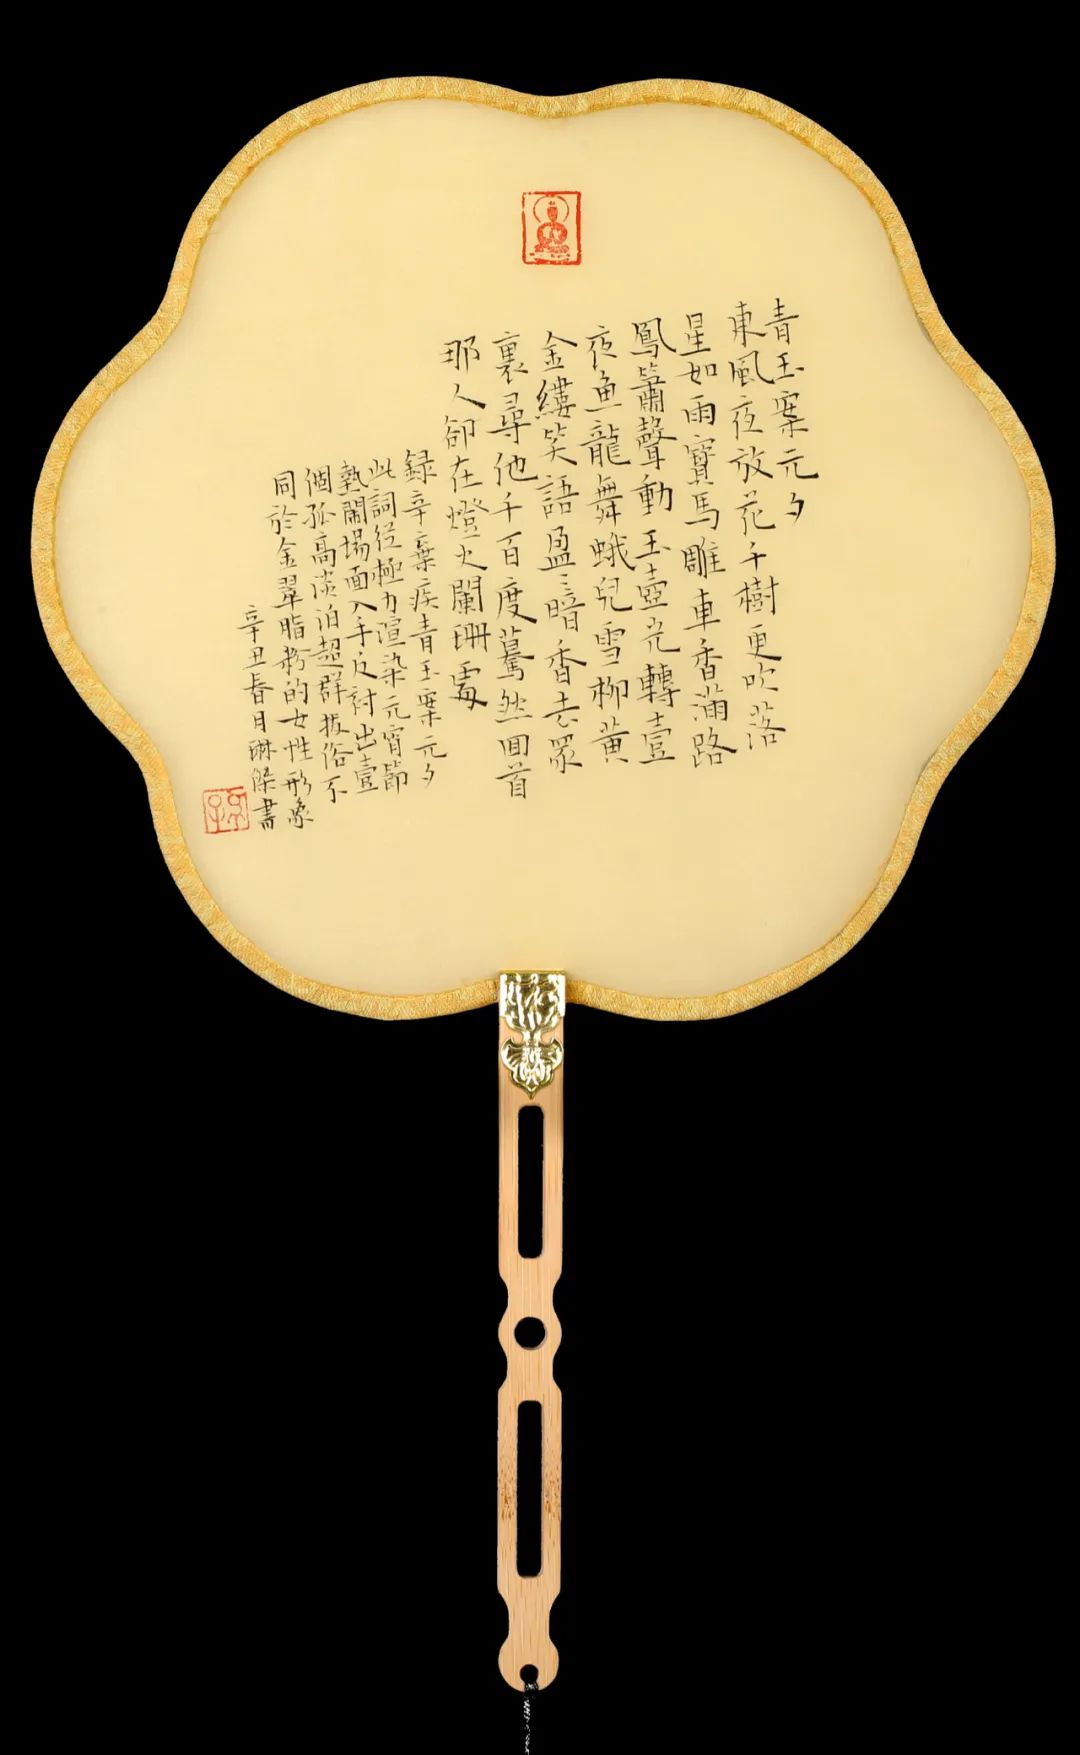 青玉案元夕
東風夜放花千樹更吹落
星如雨寶馬雕車香滿路
鳳簫聲動玉壺光轉壹
夜魚龍舞蛾兒雪柳黃
金縷笑語盈〻暗香去眾
裏尋他千百度驀然回首
那人卻在燈火闌珊處
録辛棄疾青玉案元夕
此詞從極力渲染元宵節
熱鬧場面入手反襯出壹
個孤高淡泊超群拔俗不
同於金翠脂粉的女性形象
辛丑春月琳傑書